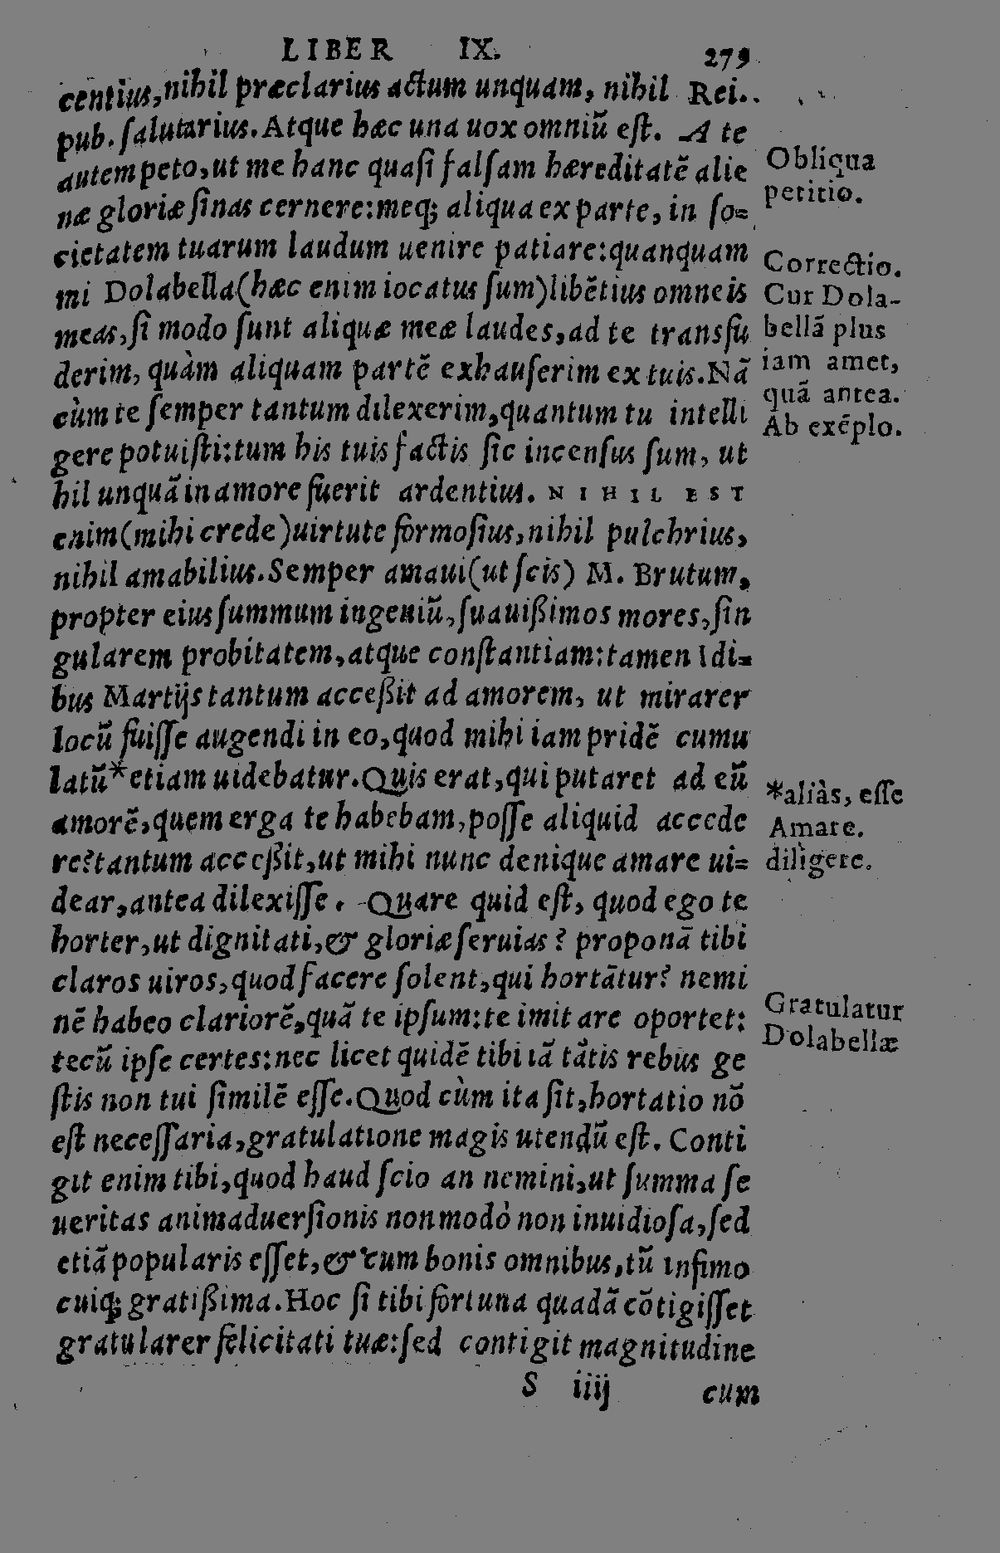 LIBER IX. 279
centius, nihil præclarius actum unquam, nihil Rei..
pub. ſalutarius. Atque hæc una uox omniũ eſt. A te
autem peto, ut me hanc quaſi falſam hæreditatẽ alie
næ gloriæ ſinas cernere: meq; aliqua ex parte, in ſo-
cietatem tuarum laudum uenire patiare: quanquam
mi Dolabella (hæc enim iocatus ſum) libẽtius omneis
meas, ſi modo ſunt aliquæ meæ laudes, ad te transfu
derim, quàm aliquam partẽ exhauſerim ex tuis. Nã
cùm te ſemper tantum dilexerim, quantum tu intelli
gere potuiſti: tum his tuis factis ſic incenſus ſum, ut
hil unquã in amore fuerit ardentius. NIHIL EST
enim (mihi crede) uirtute formoſius, nihil pulchrius,
nihil amabilius. Semper amaui (ut ſcis) M. Brutum,
propter eius ſummum ingeniũ, ſuauißimos mores, ſin
gularem probitatem, atque conſtantiam: tamen Idi-
bus Martijs tantum acceßit ad amorem, ut mirarer
locũ fuiſſe augendi in eo, quod mihi iam pridẽ cumu
latũ* etiam uidebatur. Quis erat, qui putaret ad eũ
amorẽ, quem erga te habebam, poſſe aliquid accede
re? tantum acceßit, ut mihi nunc denique amare ui-
dear, antea dilexiſſe. Quare quid eſt, quod ego te
horter, ut dignitati, & gloriæ ſeruias? proponã tibi
claros uiros, quod facere ſolent, qui hortãtur? nemi
nẽ habeo clariorẽ, quã te ipſum: te imitare oportet:
tecũ ipſe certes: nec licet quidẽ tibi iã tãtis rebus ge
ſtis non tui ſimilẽ eſſe. Quod cùm ita ſit, hortatio nõ
eſt neceſſaria, gratulatione magis utendũ eſt. Conti
git enim tibi, quod haud ſcio an nemini, ut ſumma ſe
ueritas animaduerſionis non modò non inuidioſa, ſed
etiã popularis eſſet, & cum bonis omnibus, tũ infimo
cuiq; gratißima. Hoc ſi tibi fortuna quadã cõtigiſſet
gratularer felicitati tuæ: ſed contigit magnitudine
S iiij cum
Obliqua
petitio.
Correctio.
Cur Dola-
bellã plus
iam amet,
quã antea.
Ab exẽplo.
*aliàs, eſſe
Amare.
diligere.
Gratulatur
Dolabellæ